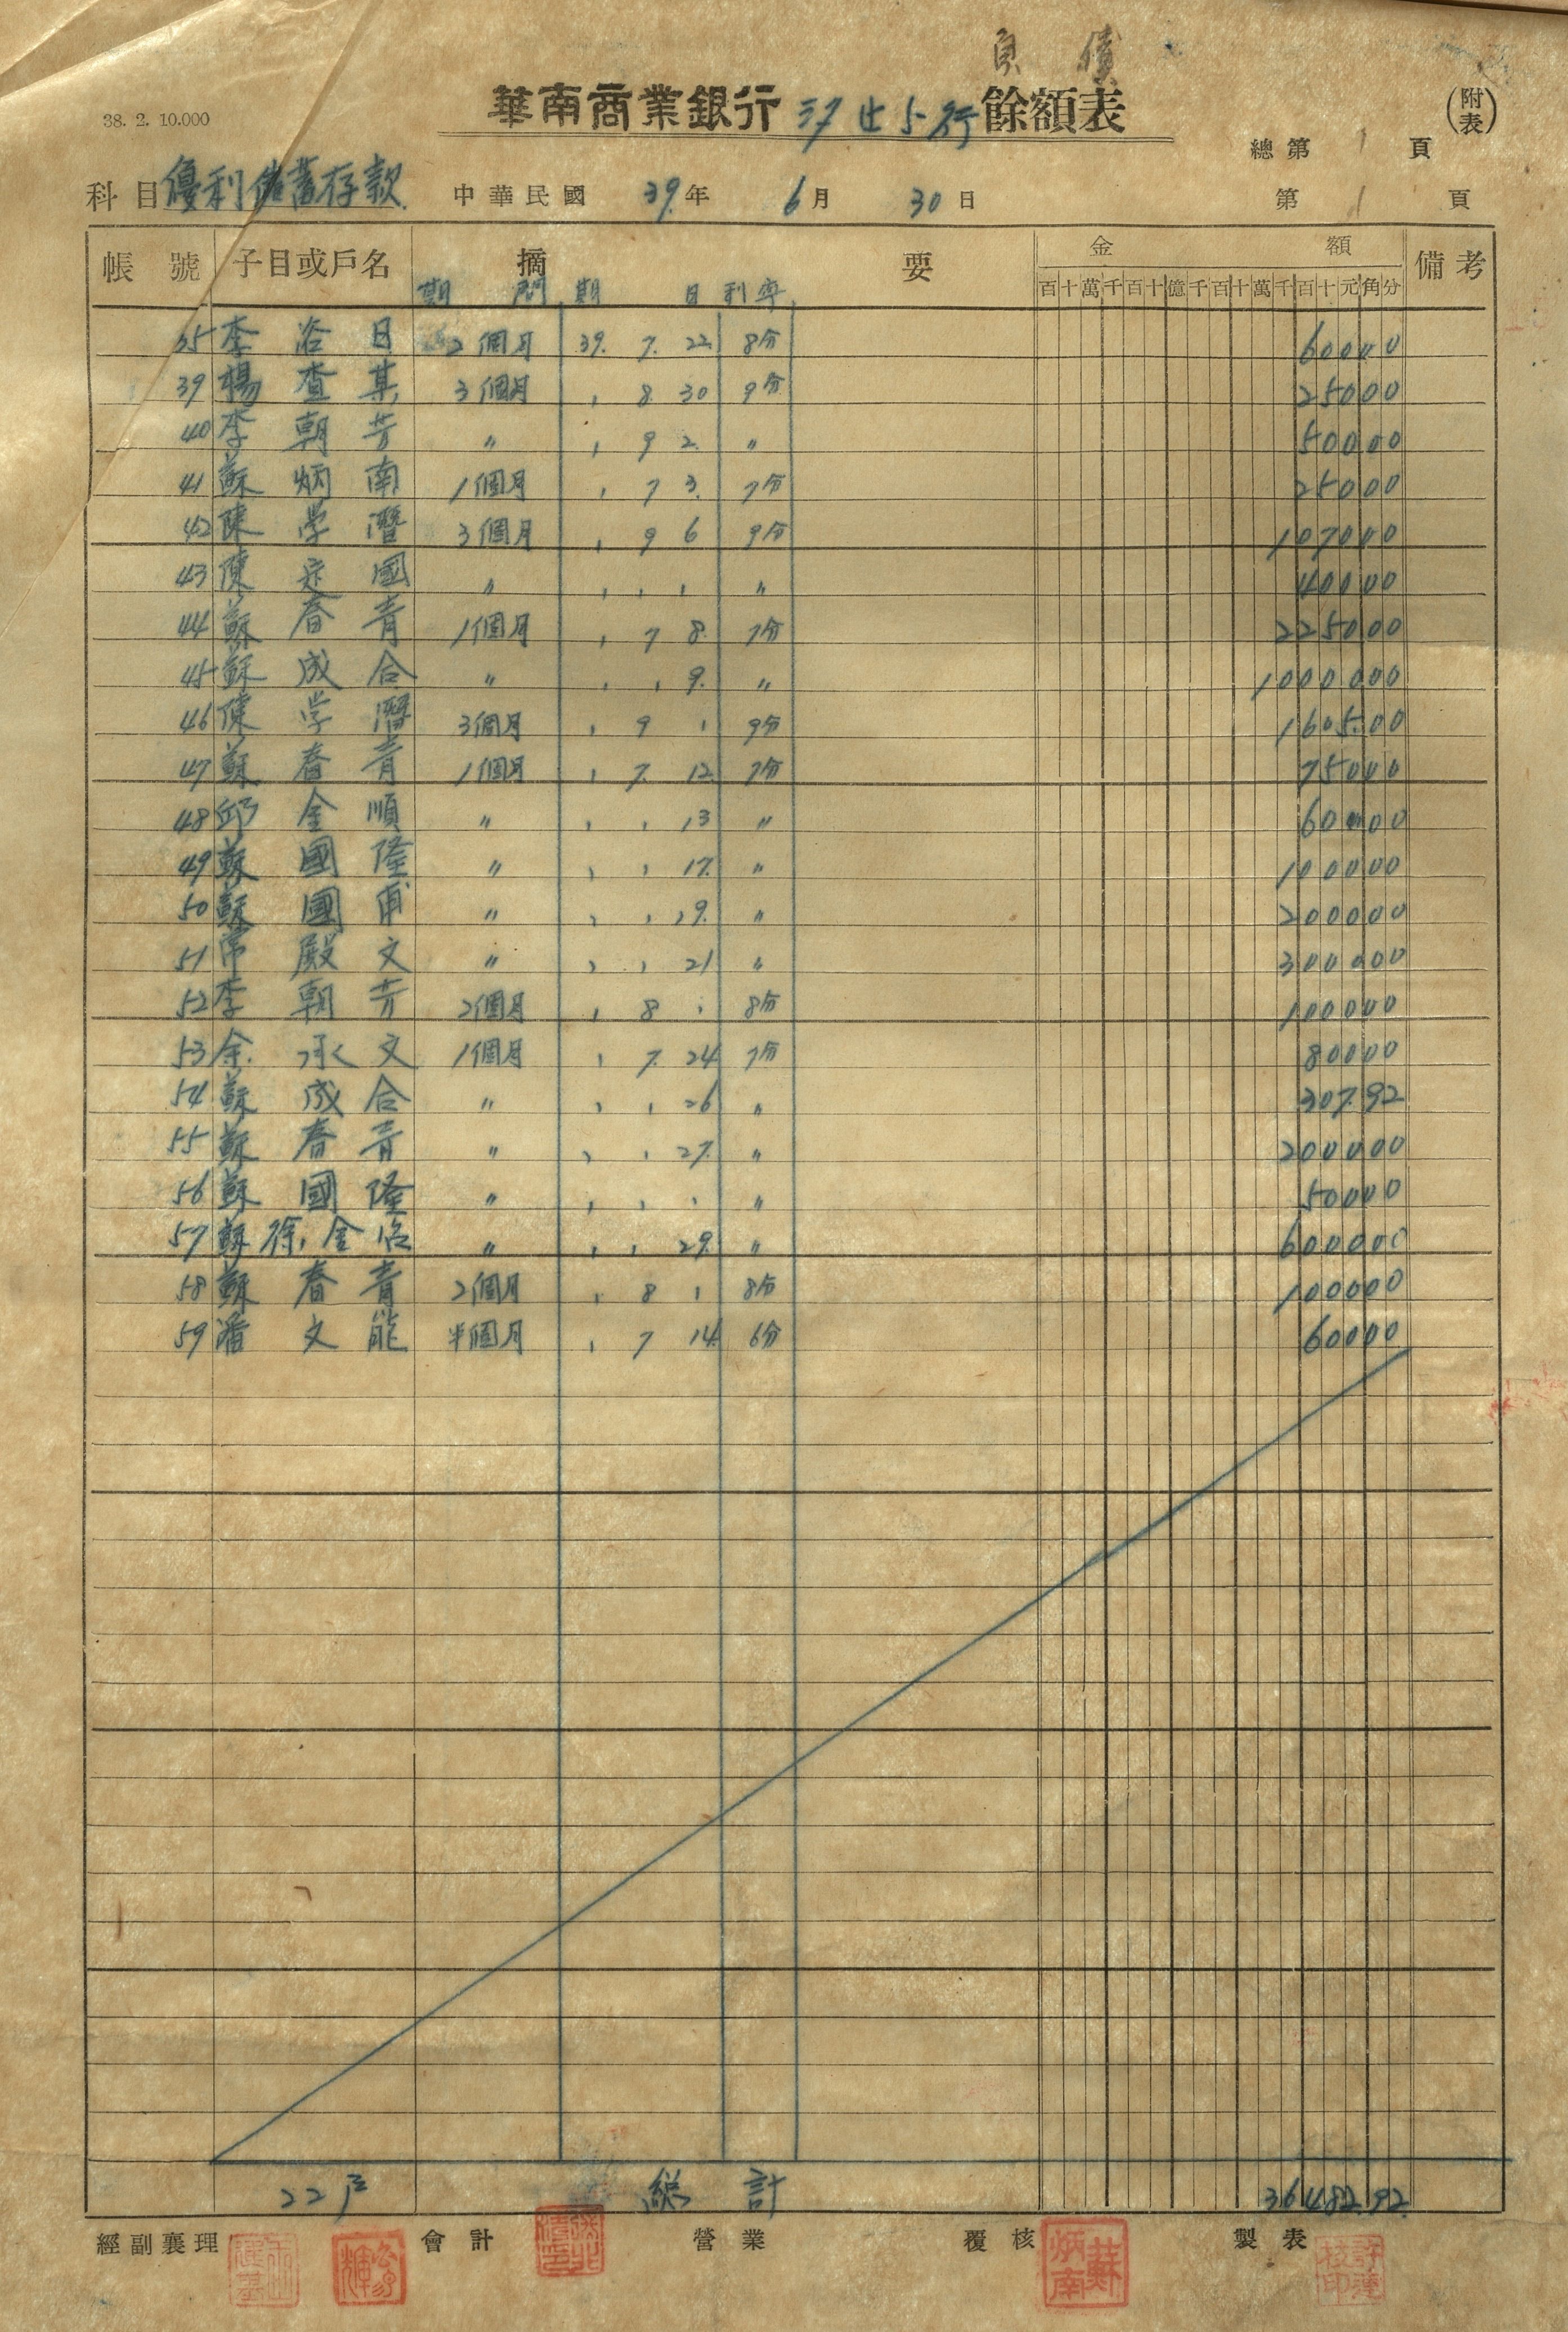 負 債
38. 2. 10.000 華南商業銀行 汐止分行 餘額表 (附表)
總第 1 頁
科目 優利儲蓄存款 中華民國 39年 6月 30日 第 1 頁
帳號 子目或戶名 摘 要 金 額 備考
期間 期日 利率 百十萬千百十億千百十萬千百十元角分
35 李 浴 日 2個月 39. 7. 22. 8分 60000
39 楊 查 某 3個月 , 8 30 9分 25000
40 李 朝 芳 〃 , 9 2. 〃 50000
41 蘇 炳 南 1個月 , 7 3. 7分 25000
42 陳 学 潛 3個月 , 9 6 9分 107000
43 陳 定 國 〃 , , , 〃 40000
44 蘇 春 青 1個月 , 7 8. 7分 225000
45 蘇 成 合 〃 , , 9. 〃 1000000
46 陳 学 潛 3個月 , 9 , 9分 160500
47 蘇 春 青 1個月 , 7. 12. 7分 75000
48 邱 金 順 〃 , , 13 〃 60000
49 蘇 國 隆 〃 , , 17. 〃 100000
50 蘇 國 甫 〃 , , 19. 〃 200000
51 殿 文 〃 , , 21 〃 300000
52 李 朝 芳 2個月 , 8 , 8分 100000
53 余 承 文 1個月 , 7. 24 7分 80000
54 蘇 成 合 〃 , , 26 〃 307.92
55 蘇 春 青 〃 , , 27. 〃 200000
56 蘇 國 隆 〃 , , , 〃 50000
57 蘇 徐 金 〃 , , 29. 〃 600000
58 蘇 春 青 2個月 , 8 , 8分 100000
59 潘 文 能 半個月 , 7 14. 6分 60000
22戶 総 計 36482.92
經副襄理 會計 營業 覆核 蘇炳南 製表